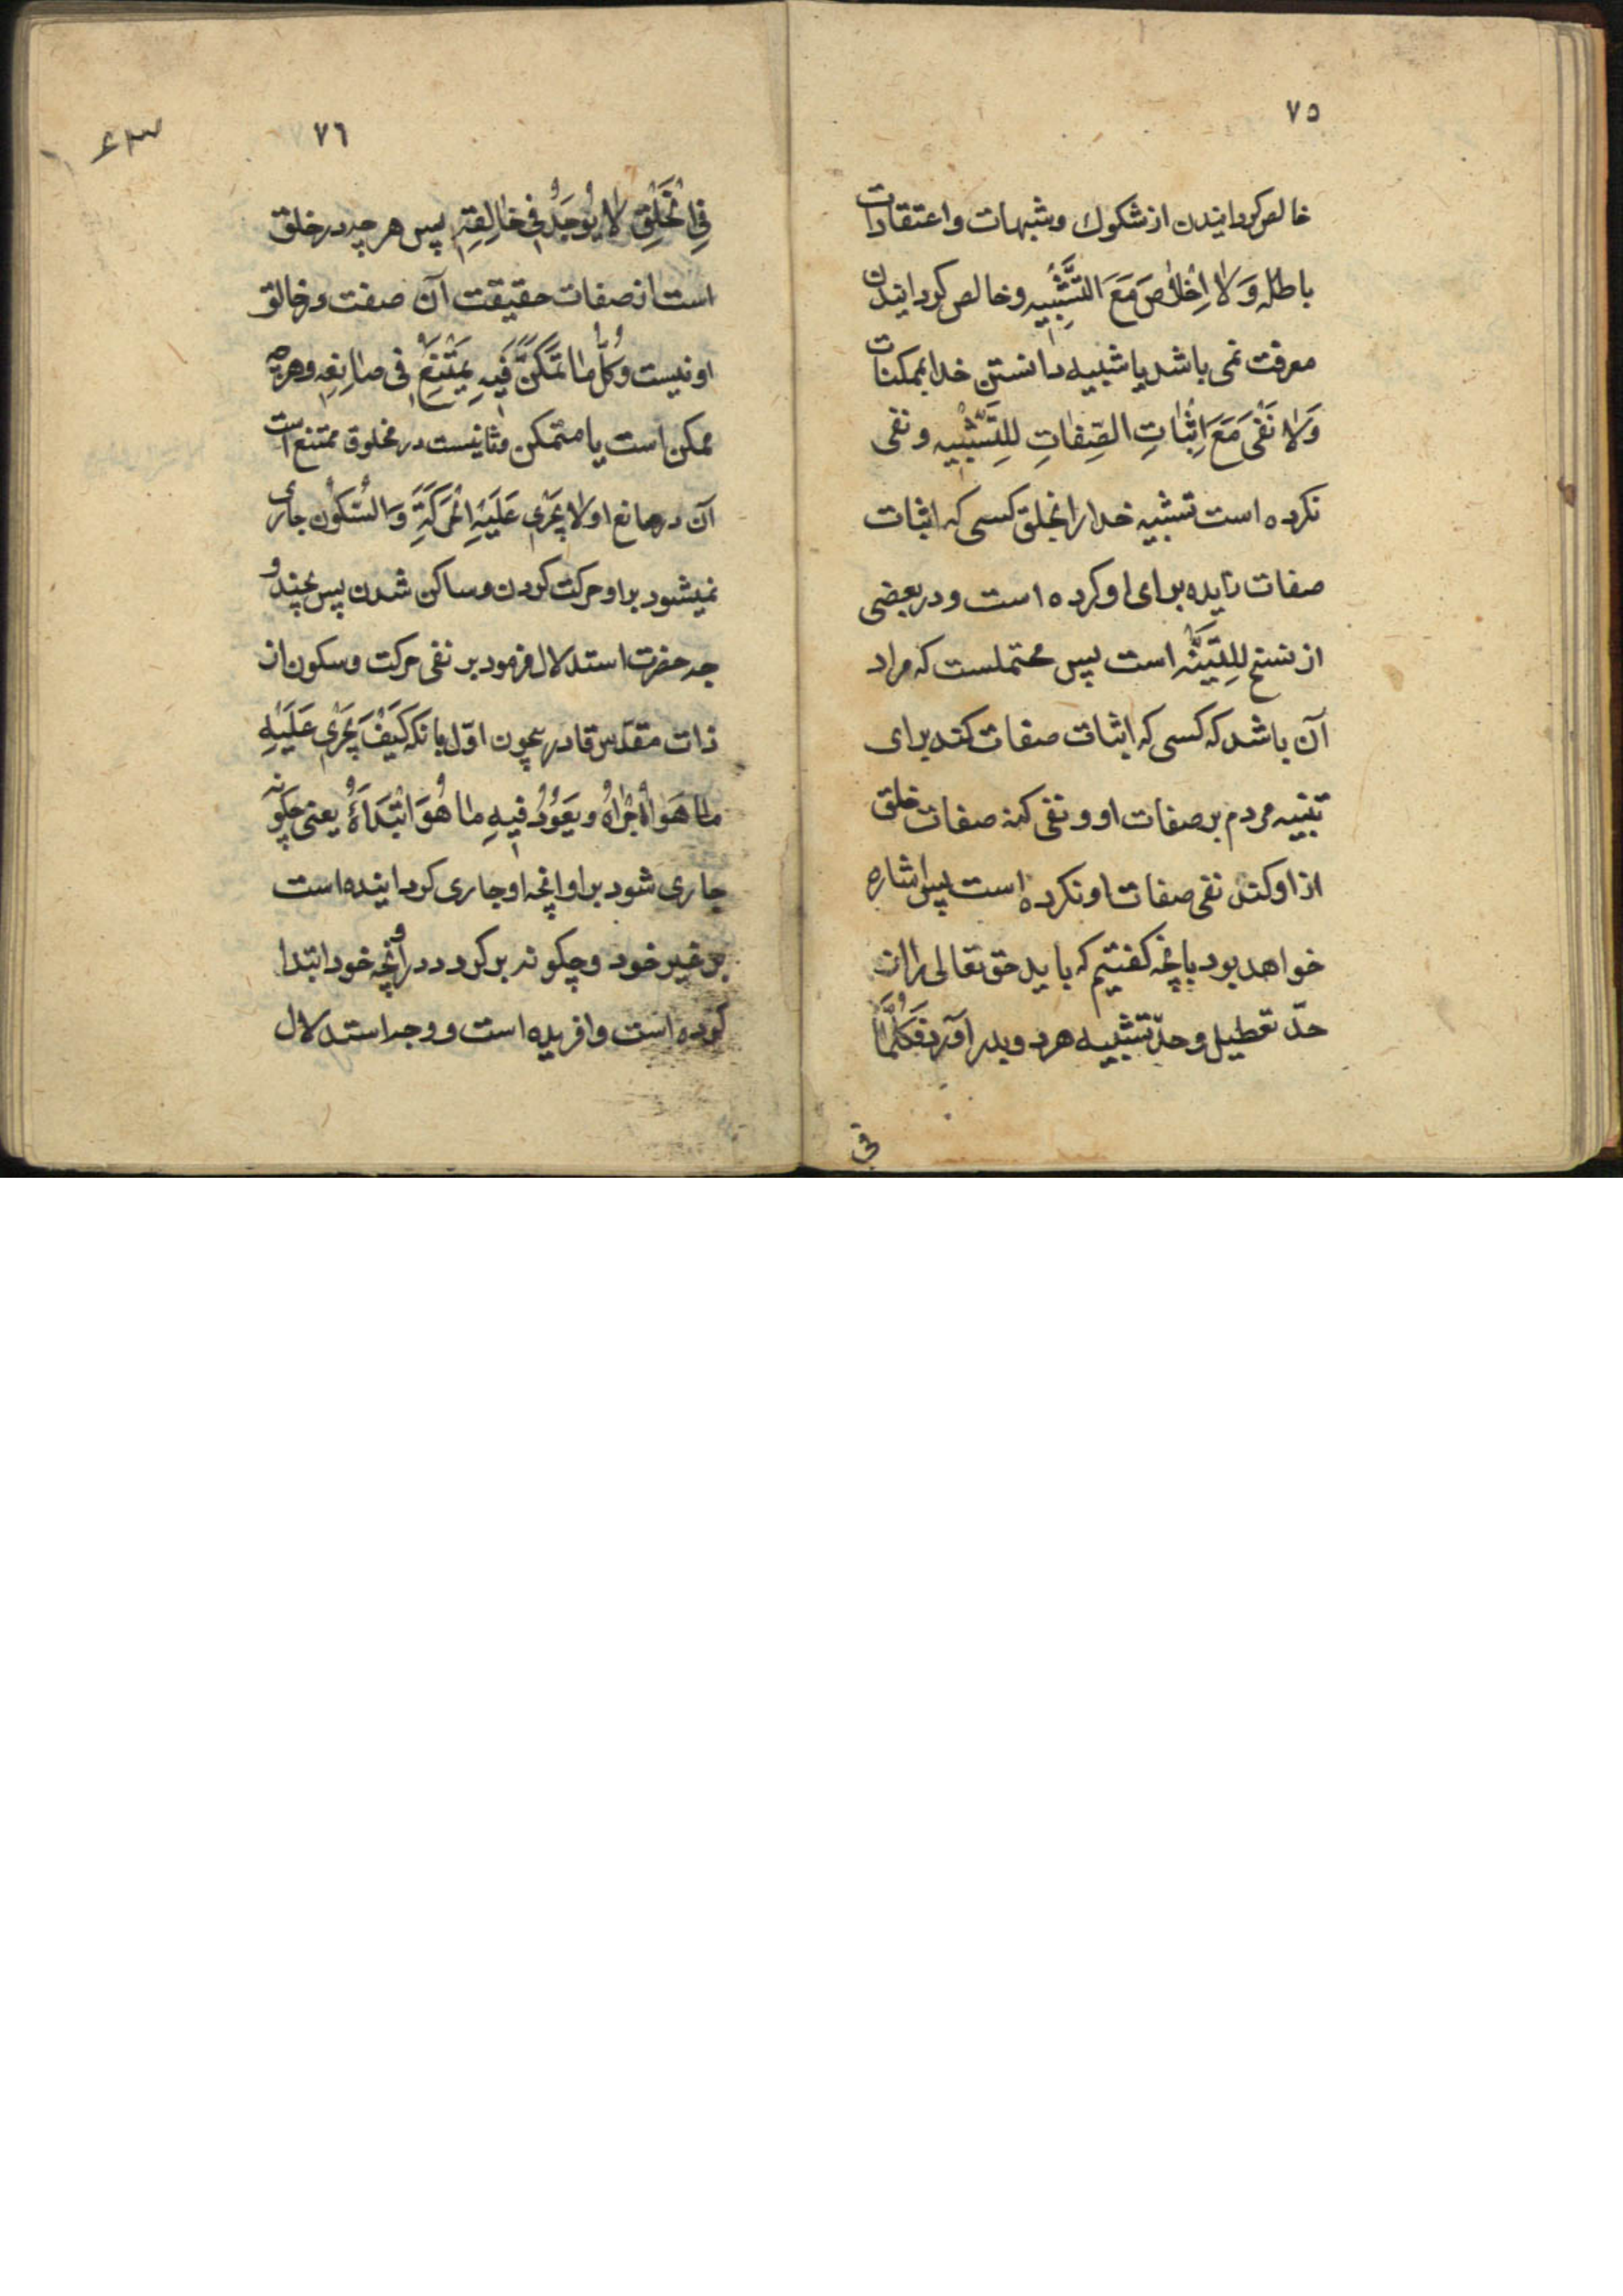 ٧٥
خالص گردانیدن از شکوک و شبهات و اعتقادات
باطله وَلاٰ اِخْلاٰصَ مَعَ التَّشْبٖیهِ و خالص گردانیدن
معرفت نمی باشد با شبیه دانستن خدا بممکنات
وَلاٰ نَفْیَ مَعَ اِثْبٰاتِ الصِّفٰاتِ لِلتَّشْبٖیهِ و نفی
نکرده است تشبیه خدا را بخلق کسی که اثبات
صفات زایده برای او کرده است و در بعضی
از نسخ لِلتَّنْبِیْه است پس محتملست که مراد
آن باشد که کسی که اثبات صفات کند برای
تنبیه مردم بر صفات او و نفی کنه صفات خلق
از او کند نفی صفات او نکرده است پس اشاره
خواهد بود بانچه گفتیم که باید حق تعالی را از
حدّ تعطیل و حدّ تشبیه هر دو بدر آورد فَکُلَّمٰا
فی
٧٦
فِی الْخَلْقِ لاٰ یُوْجَدُ فٖی خٰالِقِهٖ پس هر چه در خلق
است از صفات حقیقت آن صفت در خالق
او نیست وَکُلُّ مٰا یُمْکِنُ فٖیهِ یَمْتَنِعُ فی صٰانِعِهٖ و هر چه
ممکن است یا متمکن در مخلوق ممتنع است
آن در صانع او لاٰ یَجْرٖی عَلَیْهِ الْحَرَکَةُ وَ السُّکُونُ جاری
نمیشود بر او حرکت کردن و ساکن شدن پس بچند و
جه حضرت استدلال فرمود بر نفی حرکت و سکون از
ذات مقدّس قادر بیچون اوّل بانکه کَیْفَ یَجْرٖی عَلَیْهِ
مٰا هُوَ اَجْرٰاهُ و یَعُوْدُ فٖیهِ مٰا هُوَ ابْتَدَاَهُ یعنی چگونه
جاری شود بر او انچه او جاری گردانیده است
بر غیر خود و چگونه بر گردد در او آنچه خود ابتدا
کرده است و افریده است و وجه استدلال